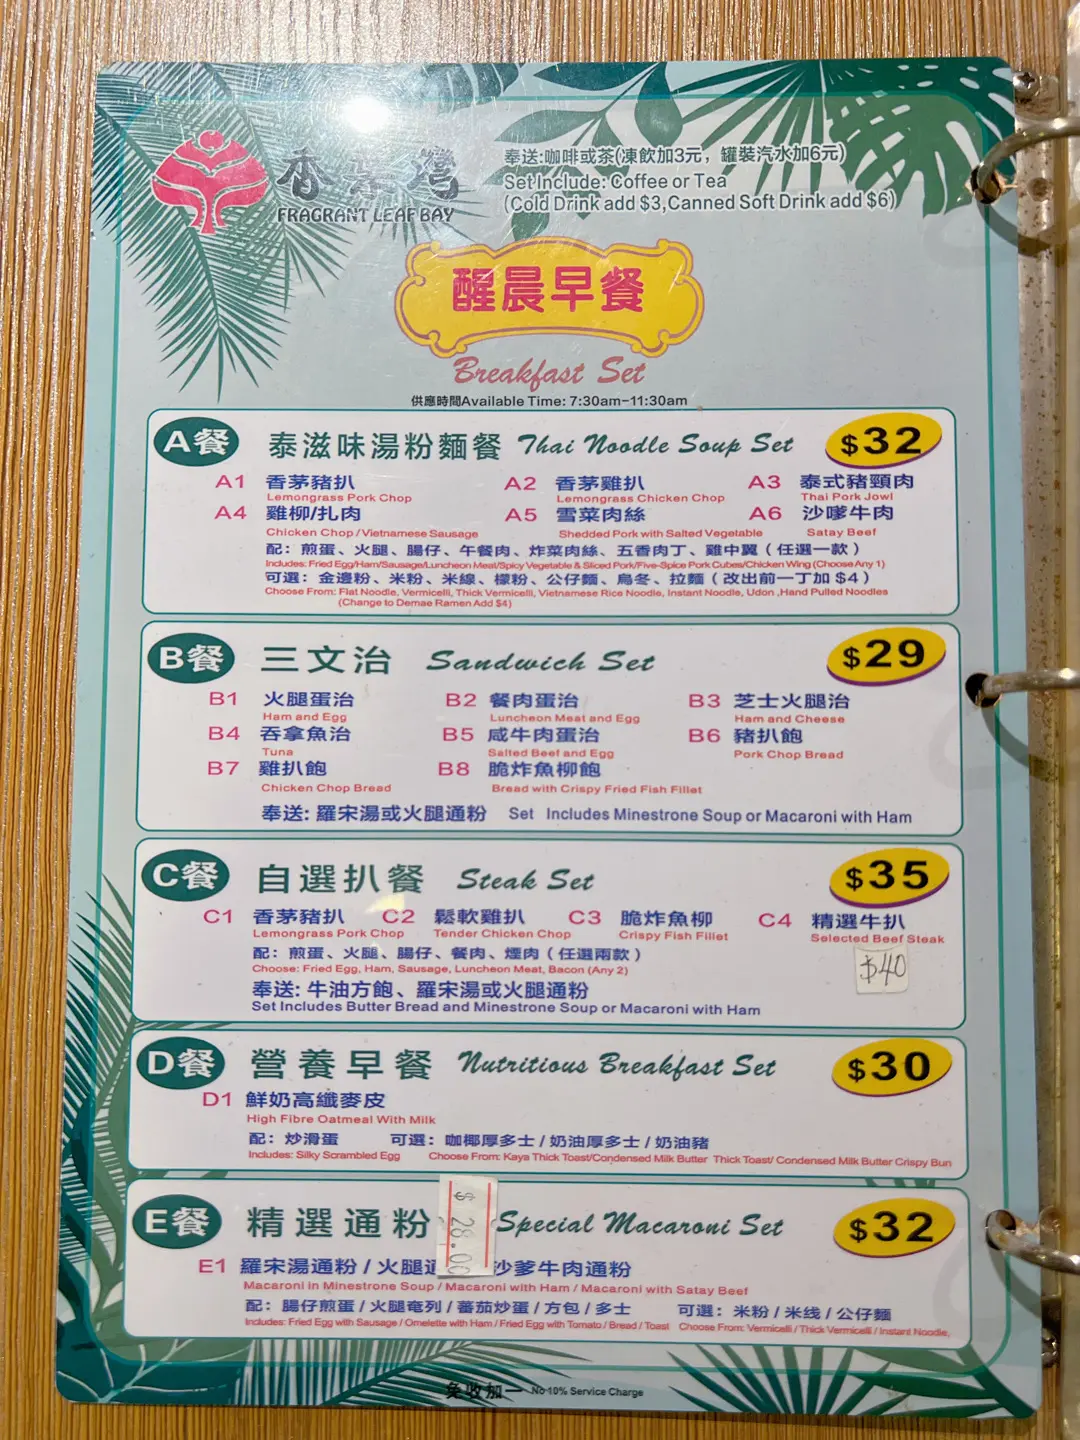 香茅灣
FRAGRANT LEAF BAY
奉送:咖啡或茶(凍飲加3元，罐裝汽水加6元)
Set Include: Coffee or Tea
(Cold Drink add $3,Canned Soft Drink add $6)
醒晨早餐
Breakfast Set
供應時間Available Time: 7:30am-11:30am
A餐 泰滋味湯粉麵餐 Thai Noodle Soup Set $32
A1 香茅豬扒 A2 香茅雞扒 A3 泰式豬頸肉
Lemongrass Pork Chop Lemongrass Chicken Chop Thai Pork Jowl
A4 雞柳/扎肉 A5 雪菜肉絲 A6 沙嗲牛肉
Chicken Chop/Vietnamese Sausage Shedded Pork with Salted Vegetable Satay Beef
配：煎蛋、火腿、腸仔、午餐肉、炸菜肉絲、五香肉丁、雞中翼（任選一款）
Includes: Fried Egg/Ham/Sausage/Luncheon Meat/Spicy Vegetable & Sliced Pork/Five-Spice Pork Cubes/Chicken Wing (Choose Any 1)
可選：金邊粉、米粉、米線、檬粉、公仔麵、烏冬、拉麵（改出前一丁加 $4）
Choose From: Flat Noodle, Vermicelli, Thick Vermicelli, Vietnamese Rice Noodle, Instant Noodle, Udon ,Hand Pulled Noodles
(Change to Demae Ramen Add $4)
B餐 三文治 Sandwich Set $29
B1 火腿蛋治 B2 餐肉蛋治 B3 芝士火腿治
Ham and Egg Luncheon Meat and Egg Ham and Cheese
B4 吞拿魚治 B5 咸牛肉蛋治 B6 豬扒飽
Tuna Salted Beef and Egg Pork Chop Bread
B7 雞扒飽 B8 脆炸魚柳飽
Chicken Chop Bread Bread with Crispy Fried Fish Fillet
奉送: 羅宋湯或火腿通粉 Set Includes Minestrone Soup or Macaroni with Ham
C餐 自選扒餐 Steak Set $35
C1 香茅豬扒 C2 鬆軟雞扒 C3 脆炸魚柳 C4 精選牛扒
Lemongrass Pork Chop Tender Chicken Chop Crispy Fish Fillet Selected Beef Steak
配：煎蛋、火腿、腸仔、餐肉、煙肉（任選兩款） $40
Choose: Fried Egg, Ham, Sausage, Luncheon Meat, Bacon (Any 2)
奉送: 牛油方飽、羅宋湯或火腿通粉
Set Includes Butter Bread and Minestrone Soup or Macaroni with Ham
D餐 營養早餐 Nutritious Breakfast Set $30
D1 鮮奶高纖麥皮
High Fibre Oatmeal With Milk
配：炒滑蛋 可選：咖椰厚多士/奶油厚多士/奶油豬
Includes: Silky Scrambled Egg Choose From: Kaya Thick Toast/Condensed Milk Butter Thick Toast/ Condensed Milk Butter Crispy Bun
E餐 精選通粉 $28.00 Special Macaroni Set $32
E1 羅宋湯通粉/火腿 沙爹牛肉通粉
Macaroni in Minestrone Soup / Macaroni with Ham / Macaroni with Satay Beef
配：腸仔煎蛋/火腿奄列/蕃茄炒蛋/方包/多士 可選：米粉/米线/公仔麵
Includes: Fried Egg with Sausage / Omelette with Ham / Fried Egg with Tomato / Bread / Toast Choose From: Vermicelli / Thick Vermicelli / Instant Noodle,
免收加一 No 10% Service Charge